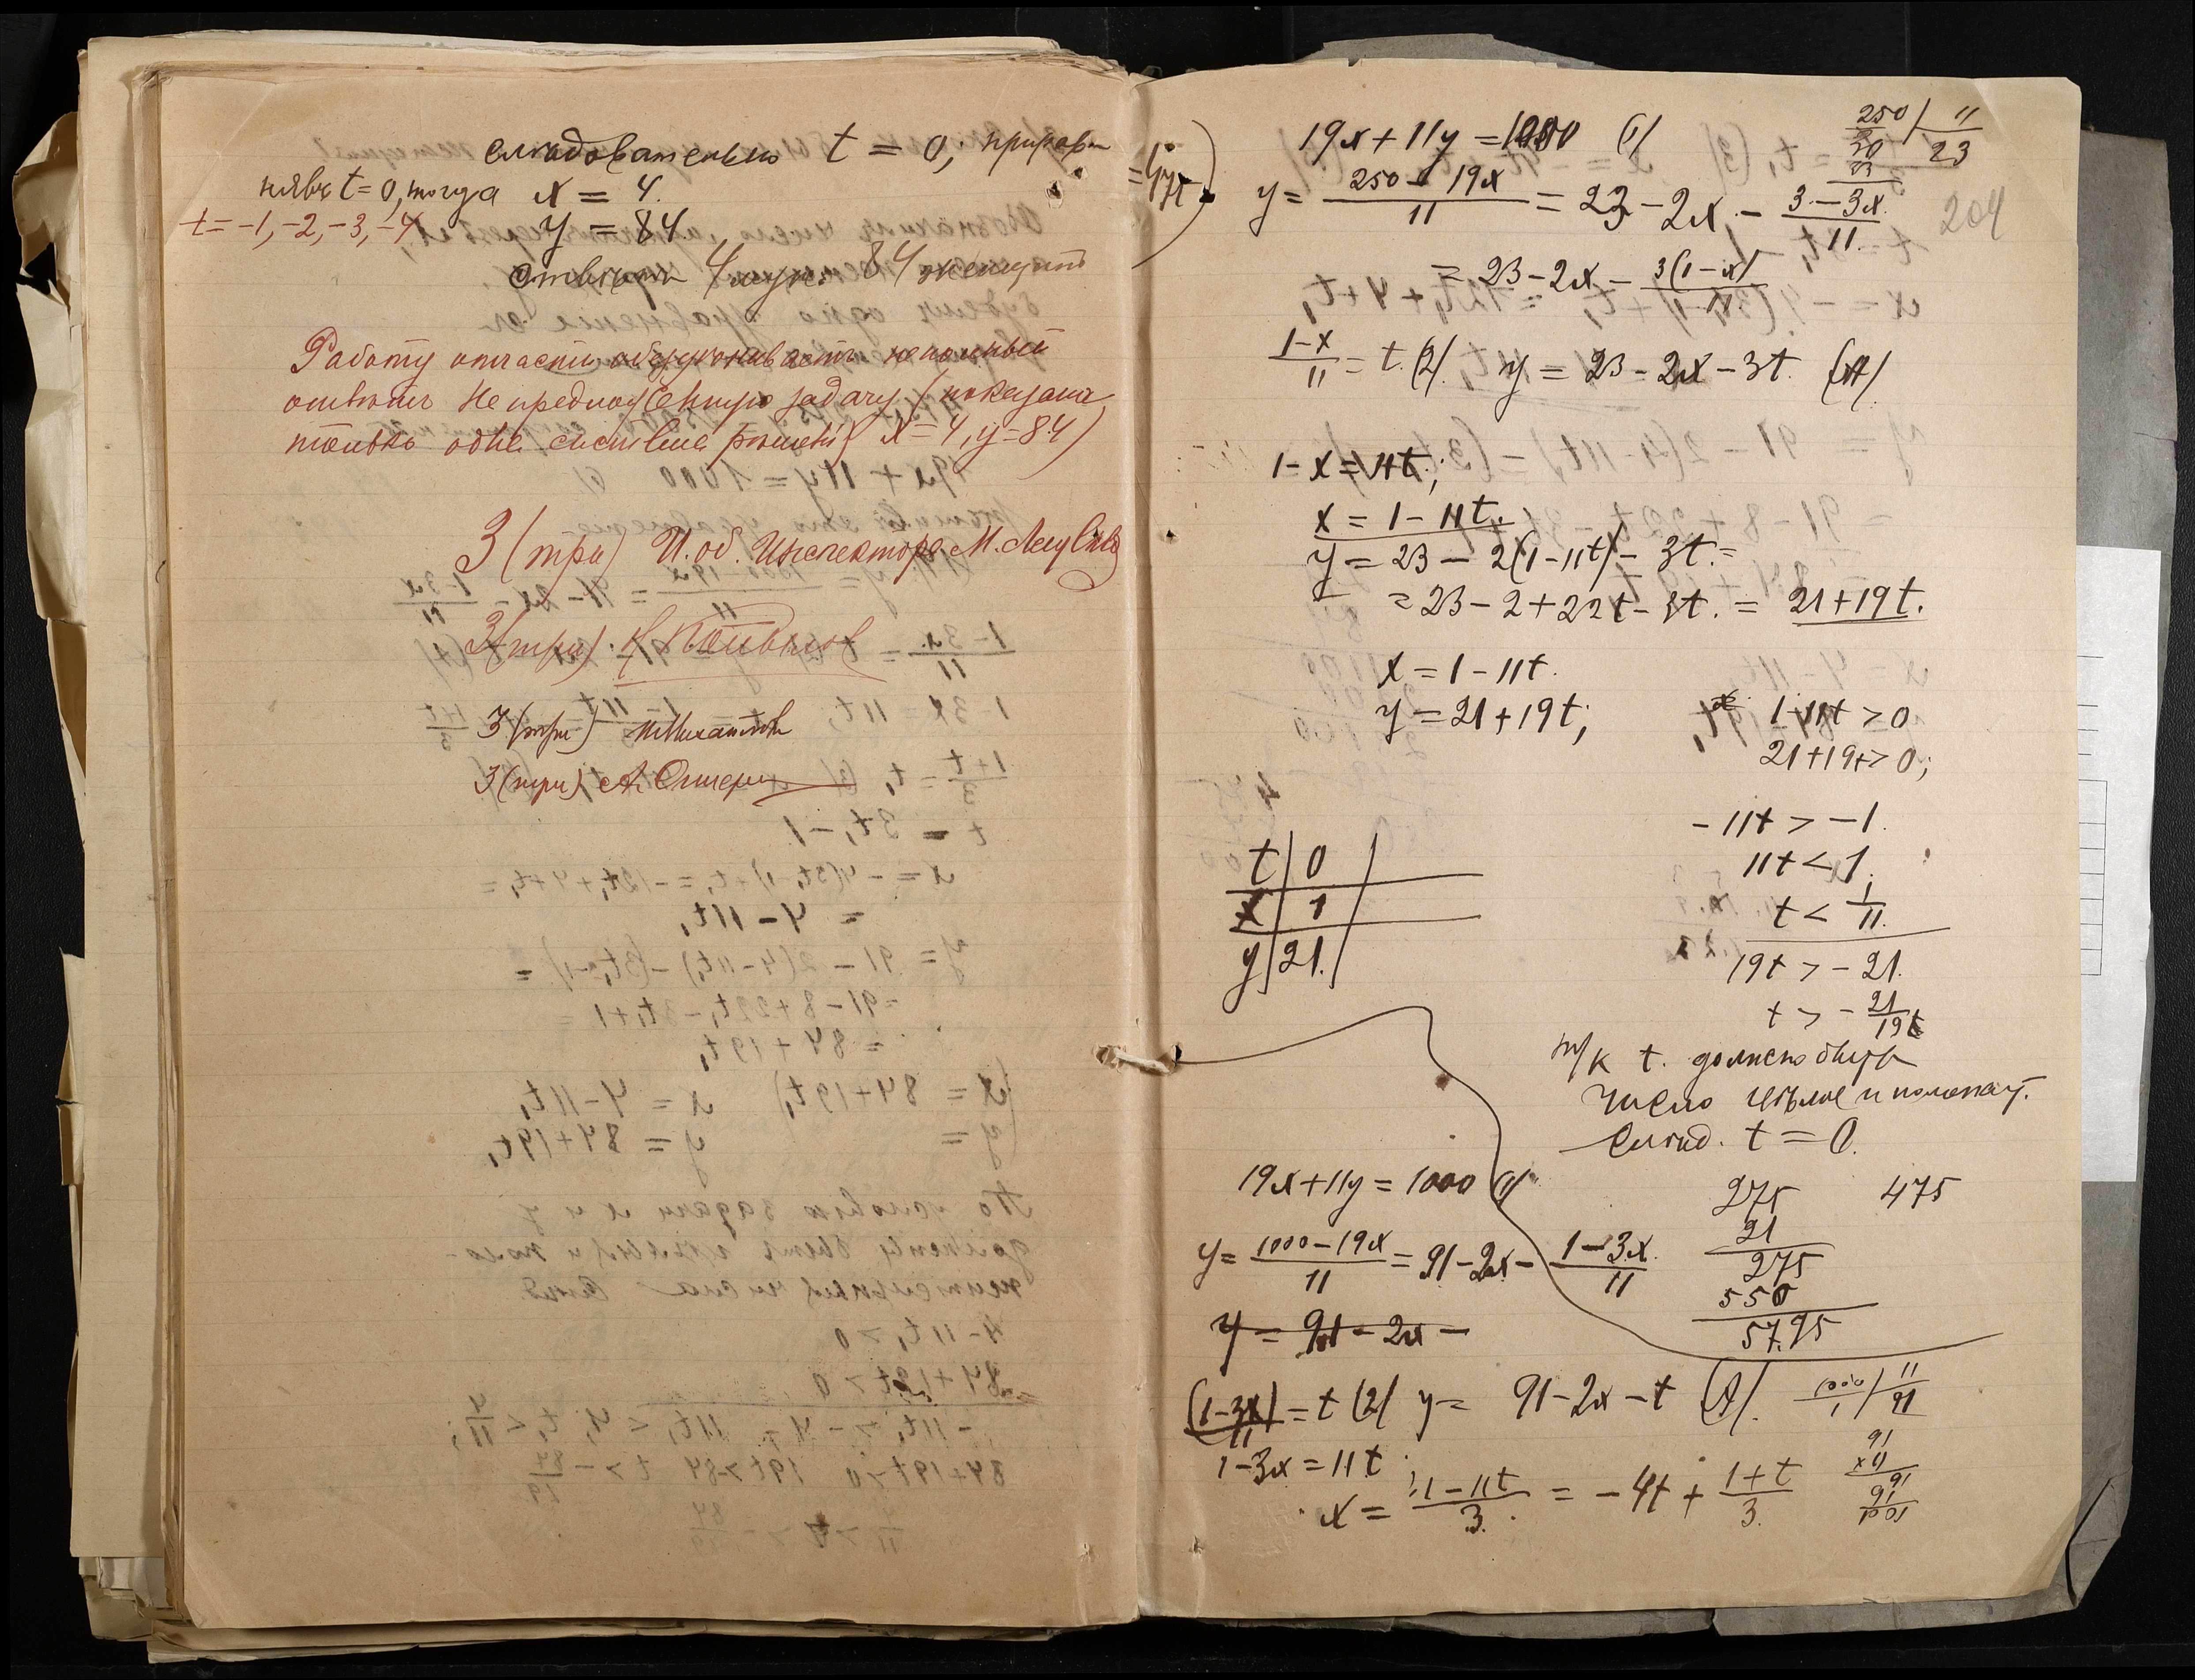 следовательно t = 0; приравн
нявъ t = 0, тогда x = 4.
t = -1, -2, -3, -4
y = 84.
отвѣтъ 4 муж. 84 женщинъ
Работу отчасти обезцѣниваетъ неполный
отвѣтъ на задачу (показана
только одна система рѣшенія x = 4, y = 84)
3 (три) И. об. Инспектора М.
3 (три).
3 (три)
3 (три) А.
19x + 11y = (1)
y = \frac{250 - 19x}{11} = 23 - 2x - \frac{3 - 3x}{11}
= 23 - 2x - \frac{3(1-x)}{11}
\frac{1-x}{11} = t. (2). y = 23 - 2x - 3t. (A).
1 - x = 11t;
x = 1 - 11t.
y = 23 - 2(1 - 11t) - 3t. =
= 23 - 2 + 22t - 3t. = 21 + 19t.
x = 1 - 11t.
y = 21 + 19t;
250 / 11
30
23
204
1 - 11t > 0
21 + 19t > 0;
- 11t > -1.
11t < 1;
t < \frac{1}{11}.
19t > - 21.
t > - \frac{21}{19}
т/к t. должно быть
число цѣлое и положат.
слѣд. t = 0.
t | 0
x | 1
y | 21.
19x + 11y = 1000 (1)
y = \frac{1000 - 19x}{11} = 91 - 2x - \frac{1 - 3x}{11}
y = 91 - 2x -
\frac{(1-3x)}{11} = t (2) y = 91 - 2x - t (A).
1 - 3x = 11t
x = \frac{1 - 11t}{3} = - 4t + \frac{1 + t}{3}
275
21
275
550
5795
475
1000 / 11
1 / 91
91
x 11
91
91
1001